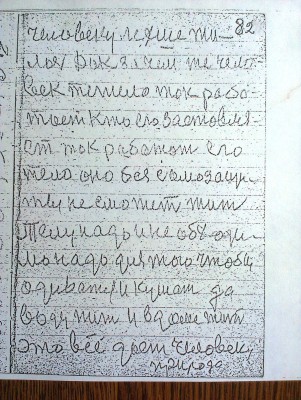 82
человеку легше жи-
лоя Дак зачем же чело-
век тежело ток рабо-
тает кто его заставля-
ет ток работат его
тело оно без самозащи-
ты не сможет жит
телу надо и не обходи-
мо надо для того чтобы
одиват и кушат да
воду пит и в доме жит
это всё дает человеку
природа